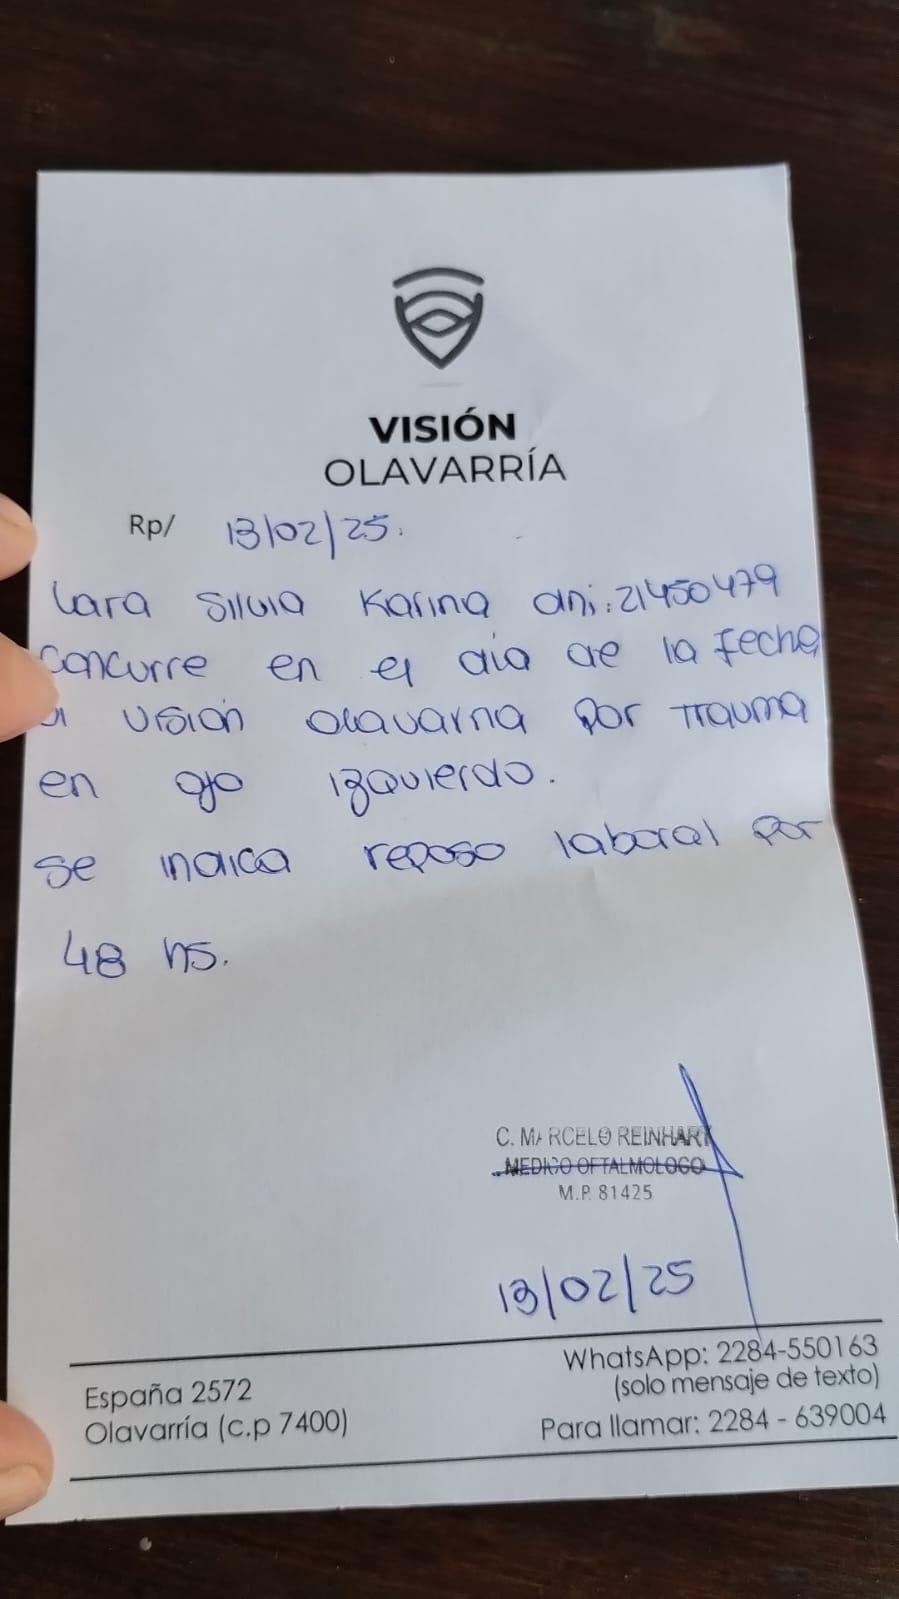 VISIÓN
OLAVARRÍA
Rp/ 13/02/25.
Lara Silvia Karina dni: 21450479
concurre en el día de la fecha
a visión olavarria por trauma
en ojo izquierdo.
se indica reposo laboral por
48 hs.
C. MARCELO REINHART
MEDICO OFTALMOLOGO
M.P. 81425
13/02/25
España 2572
Olavarría (c.p 7400)
WhatsApp: 2284-550163
(solo mensaje de texto)
Para llamar: 2284 - 639004